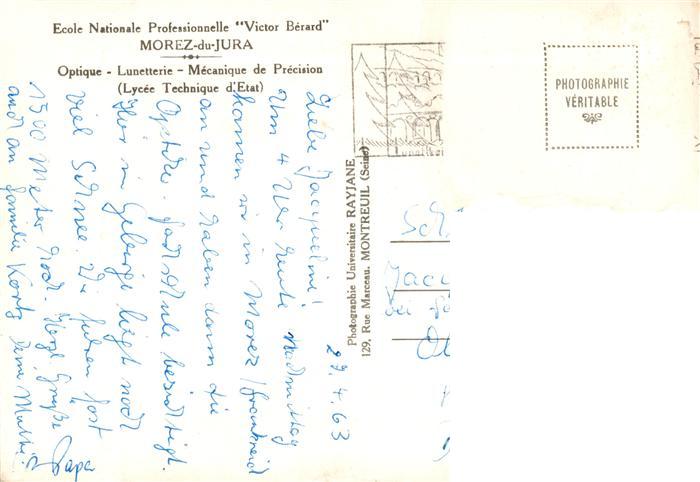 Ecole Nationale Professionnelle "Victor Bérard"
MOREZ-du-JURA
Optique - Lunetterie - Mécanique de Précision
(Lycée Technique d'Etat)
PHOTOGRAPHIE
VÉRITABLE
Photographie Universitaire RAYJANE
129, Rue Marceau, MONTREUIL (Seine)
29.4.63
Liebe Jacqueline!
Um 4 Uhr heute Nachmittag
kamen wir in Morez/Frankreich
an und haben dann die
Optiker-Fachschule besichtigt.
Hier im Gebirge liegt noch
viel Schnee. Wir fuhren fast
1500 Meter hoch. Herzl. Grüße
auch an Familie Kortz Deine Mutti
Papa
Jacq
bei